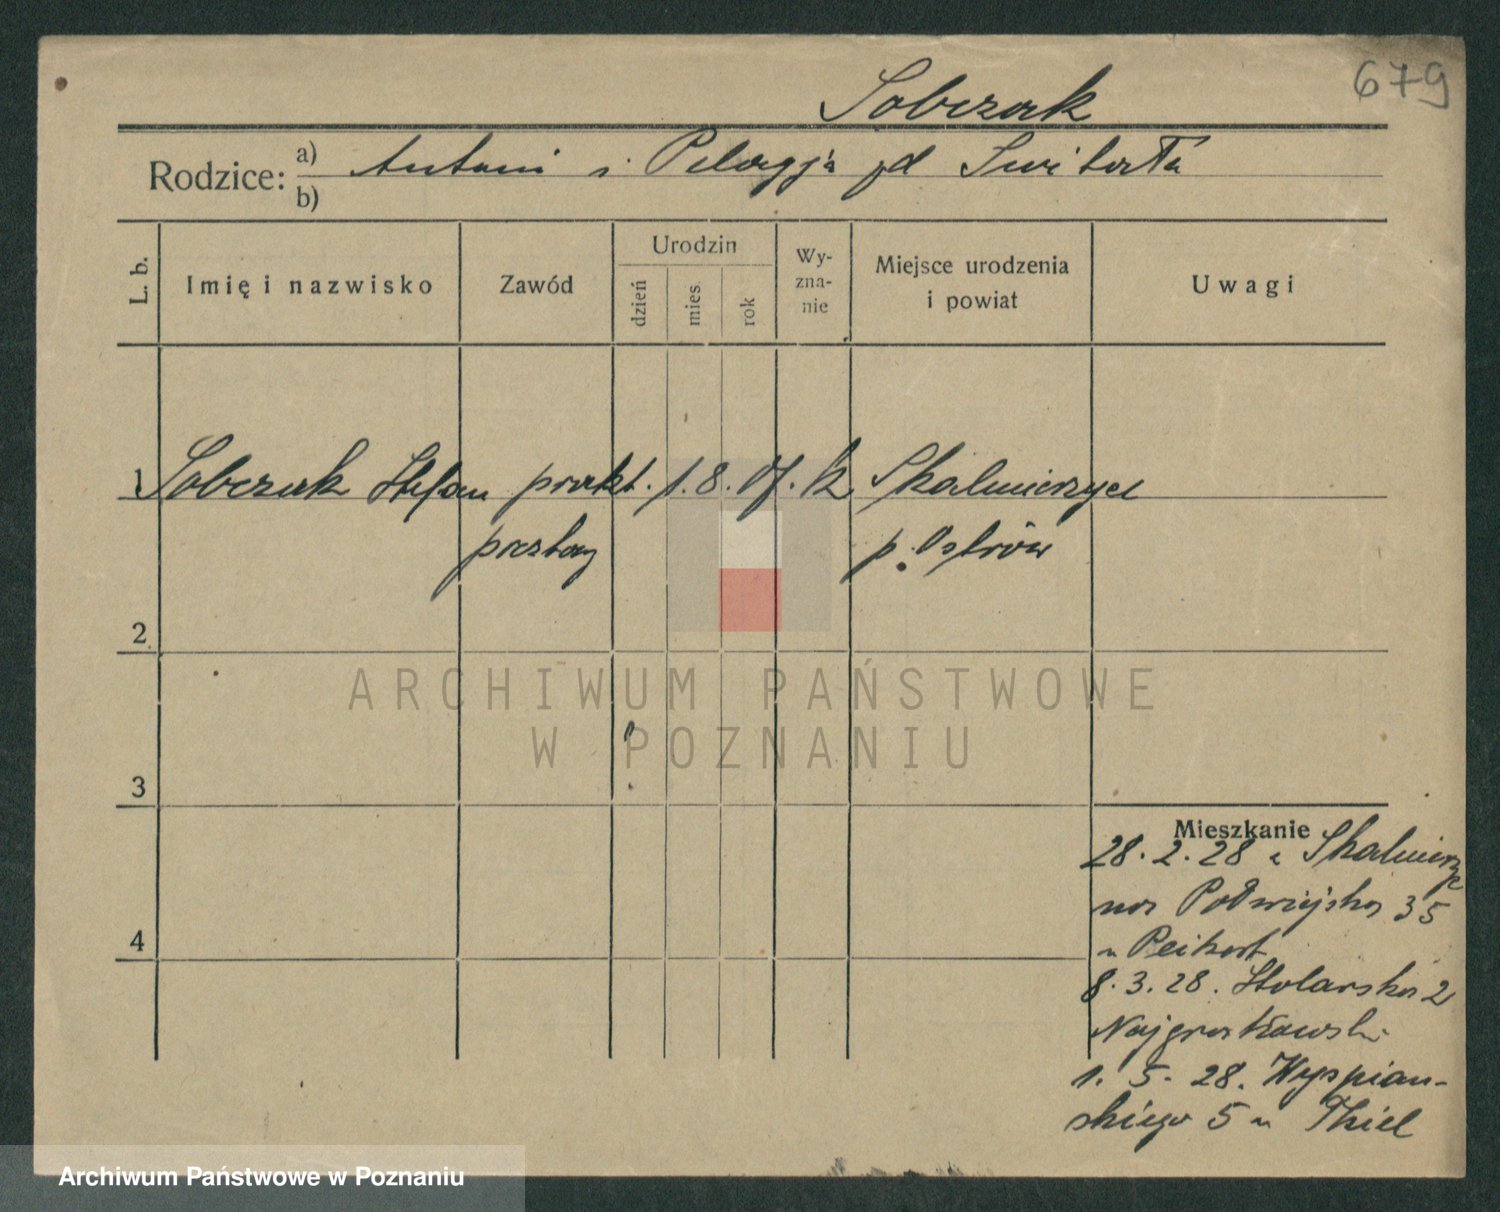 679
Sobczak
Rodzice: a) Antoni i Pelagja zd Switała
b)
L. b.
Imię i nazwisko
Zawód
Urodzin
dzień
mies.
rok
Wy-
zna-
nie
Miejsce urodzenia
i powiat
Uwagi
1 Sobczak Stefan prakt. 1. 8. 07. k Skalmierzyce
pocztowy p. Ostrów
2
3
4
ARCHIWUM PAŃSTWOWE
W POZNANIU
Mieszkanie
28. 2. 28 z Skalmierzyc
Podwiejska 35
u Peikert
8. 3. 28. Stolarska 2
1. 5. 28. Wyspian-
skiego 5 u Thiel
Archiwum Państwowe w Poznaniu